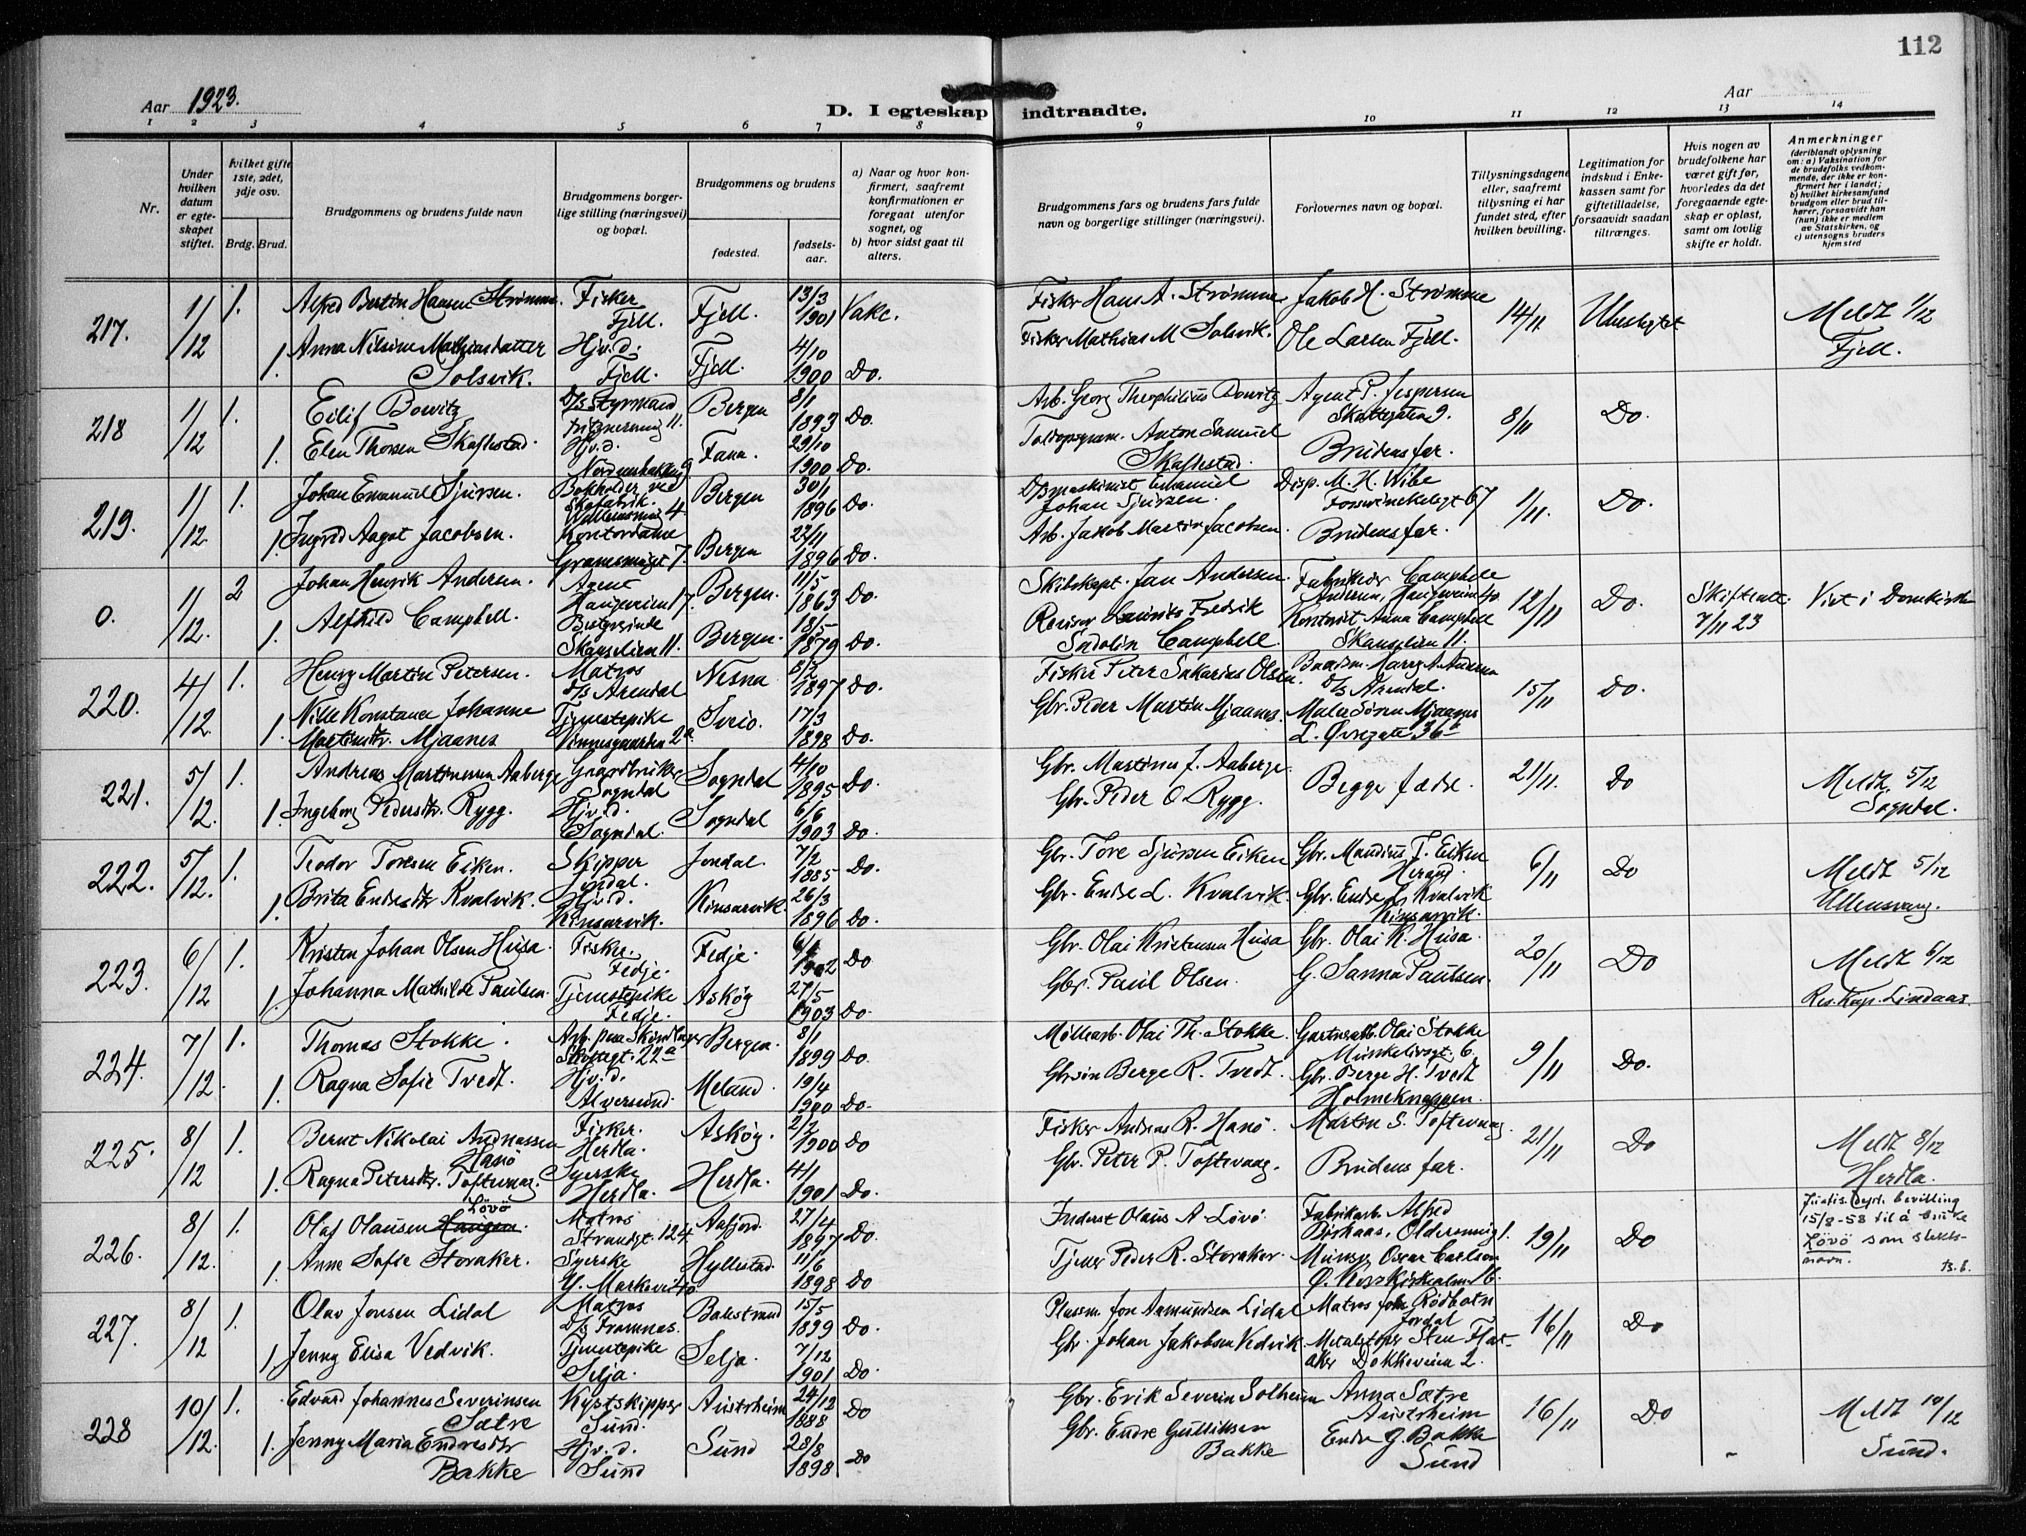 112
Aar 1923.
D. I egteskap indtraadte.
Aar
1 2 3 4 5 6 7 8 9 10 11 12 13 14
Nr.
Under hvilken datum er egteskapet stiftet.
hvilket gifte 1ste, 2det, 3dje osv.
Brdg. Brud.
Brudgommens og brudens fulde navn
Brudgommens borgerlige stilling (næringsvei) og bopæl.
Brudgommens og brudens
fødested.
fødselsaar.
a) Naar og hvor konfirmert, saafremt konfirmationen er foregaat utenfor sognet, og
b) hvor sidst gaat til alters.
Brudgommens fars og brudens fars fulde navn og borgerlige stillinger (næringsvei).
Forlovernes navn og bopæl.
Tillysningsdagene eller, saafremt tillysning ei har fundet sted, efter hvilken bevilling.
Legitimation for indskud i Enkekassen samt for giftetilladelse, forsaavidt saadan tiltrænges.
Hvis nogen av brudefolkene har været gift før, hvorledes da det foregaaende egteskap er opløst, samt om lovlig skifte er holdt.
Anmerkninger
(deriblandt oplysning om: a) Vaksination for de brudefolks vedkommende, der ikke er konfirmert her i landet; b) hvilket kirkesamfund brudgom eller brud tilhører, forsaavidt han (hun) ikke er medlem av Statskirken, og c) utensogns bruders hjemsted
217. 1/12 1. Alfred Bertin Hansen Strømme. Fisker Fjell. Fjell. 13/3 1901 Vakc. Fisker Hans A. Strømme Jakob H. Strømme 14/11 Ubeslegtet Meldt 1/12 Fjell.
1. Anna Nilsine Mathiasdatter Solsvik. Hjv.d. Fjell. Fjell. 4/10 1900 Do. Fisker Mathias M Solsvik. Ole Larsen Fjell.
218 1/12 1. Eilif Bowitz D/s Styrmand Bergen 8/1 1893 Do. Arb. Georg Theophilius Bowitz Agent P. Jespersen Skottegaten 9. 8/11 Do.
1. Elen Thorsen Skaftestad. Hjv.d. Fana. 29/10 1900 Do. Anton Samuel Skaftestad. Brudens far.
219. 1/12 1. Johan Emanuel Sjursen. Bokholder ved Bergen 30/1 1896 Do. D/s maskinist Johan Sjursen. Disp. M. H. Wibe 67 1/11. Do.
1. Ingrid Aagot Jacobsen. Kontordame 7. Bergen 1896 Do. Arb. Jakob Martin Jacobsen. Brudens far.
0. 1/12. 2 Johan Henrik Andersen. Agent Haugeveien 17. Bergen. 11/5 1863 Do. Skibskapt. Jan Andersen. Campbell 12/11 Do. Skifteatt. 7/11 23 Viet i Domkirken
1. Alfhild Campbell. Skanselien 11. Bergen. 18/5 1879 Do. Revisor Fredrik Campbell. Anna Campbell Skanselien 11.
220. 4/12. 1. Henry Martin Petersen. Matros D/s Arendal Nesna 1897 Do. Fisker Peter Sakarias Olsen. Harry A. D/s Arendal. 15/11 Do.
1. Nille Konstance Johanne Martinsdtr. Mjaanes Tjenestepike 2a Sveio. 17/3 1898 Do. Gbr. Peder Martin Mjaanes. Maler Søren Mjaanes L. Øvregate 36a
221. 5/12. 1. Andreas Martinussen Aaberge Gaardbruker Sogndal Sogndal 4/10 1895 Do. Gbr. Martinus J. Aaberge. Begge fædre. 21/11. Do Meldt 5/12 Sogndal.
1. Ingeborg Pedersdtr. Rygg. Hjv.d. Sogndal. Sogndal 6/6 1903 Do. Gbr. Peder O. Rygg.
222. 5/12. 1. Teodor Toresen Eiken. Skipper Jondal. Jondal. 7/2 1885 Do. Gbr. Tore Sjursen Eiken Gbr. Mandius T. Eiken Herand. 6/11 Do Meldt 5/12 Ullensvang.
1. Brita Endresdtr Kvalvik. Hjv.d. Kinsarvik. Kinsarvik. 26/3 1896 Do. Gbr. Endre L. Kvalvik. Gbr. Endre L Kvalvik Kinsarvik.
223. 6/12 1. Kristen Johan Olsen Husa. Fisker. Fedje. Fedje. 1902 Do Gbr. Olai Kristensen Husa Gbr. Olai K. Husa. 20/11 Do Meldt 6/12 Res. Kap. Lindaas
1. Johanna Mathilde Paulsen. Tjenestepike Fedje. Askøy 27/5 1903 Do. Gbr. Paul Olsen. G. Sanna Paulsen.
224. 7/12. 1. Thomas Stokke. Skottegt. 22a Bergen. 8/1 1899 Do. Møllearb. Olai Th. Stokke. Gartnerarb. Olai Stokke Munkelivsgt. 6. 9/11 Do.
1. Ragna Sofie Tvedt. Hjv.d. Alversund. Meland. 19/4 1900 Do. Berge R. Tvedt. Gbr. Berge H. Tvedt Holmeknappen.
225. 8/12 1. Bernt Nikolai Andreassen Hanø Fisker. Herdla. Askøy. 2/2 1900 Do Fisker Andreas R. Hanø. Marton S. Toftevaag. 21/11 Do Meldt 8/12 Herdla.
1. Ragna Petersdtr. Toftevaag. Syerske Herdla. Herdla. 4/1 1901 Do. Gbr. Peter P. Toftevaag. Brudens far.
226. 8/12. 1. Olaf Olausen Haugen. Løvø Matros Strandgt. 124 Aafjord. 27/4 1897 Do. Inderst Olaus A Løvø. Fabrikarb. Alfred 19/11 Do Justis.dept. bevilling 15/8-58 til å bruke Løvø som slektsnavn.
1. Anne Sofie Storaker. Syerske Hyllestad 11/6 1898 Do Tjener Peder R. Storaker. Oscar Carlson
227. 8/12 1. Olav Jonsen Lidal Matros D/s Framnes. Balestrand 15/5 1899 Do. Plassm. Jon Aamundsen Lidal Matros John Rødbotn 16/11 Do
1. Jenny Elisa Vedvik. Tjenestepike Selja. Selja. 7/12 1901 Do Gbr. Johan Jakobsen Vedvik. Sten Flataker Dokkeveien 2.
228 10/12. 1. Edvard Johannes Severinsen Sætre Kystskipper Sund. Austrheim 24/12 1888 Do Gbr. Erik Severin Solheim Anna Sætre Austrheim 16/11 Do Meldt 10/12 Sund.
1. Jenny Maria Endresdtr Bakke Hjv.d. Sund Sund 28/8 1898 Do Gbr. Endre Gulliksen Bakke Endre G. Bakke Sund